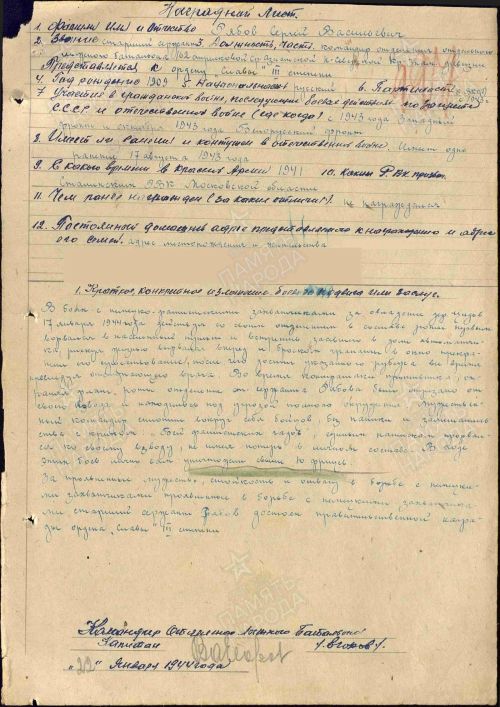 Наградной Лист.
1. Фамилия Имя и Отчество Рябов Сергей Васильевич
2. Звание старший сержант 3. Должность, часть. командир отделения отдельного
лыжного батальона 102 стрелковой
Представляется к ордену Славы III степени
4. Год рождения 1909 5. Национальность русский 6. Партийность
7. Участие в гражданской войне, последующих боевых действиях по защите
СССР и отечественной войне (где когда) с 1943 года Западный
фронт с октября 1943 года Белорусский фронт
8. Имеет ли ранения и контузии в отечественной войне. Имеет одно
ранение 17 августа 1943 года
9. С какого времени в красной Армии 1941 10. Каким РВК призван.
Сталинским РВК Московской области
11. Чем ранее награжден (за какие отличия). не награждался
12. Постоянный домашний адрес представляемого к награждению и адрес
его семьи. адрес местожительства
1. Краткое, конкретное изложение боевого подвига или заслуг.
В боях с немецко-фашистскими захватчиками за овладение
17 января 1944 года действуя со своим отделением в составе роты первым
ворвался в населенный пункт и встретив засевшего в доме автоматчика
рискуя жизнью бросился вперед и броском гранаты в окно прекратил
его существование, после чего достиг указанного рубежа
отходящего врага. Во время контратаки противника,
отделение ст. сержанта Рябова было
своего взвода и находилось под угрозой полного окружения. Мужественный
командир сплотил вокруг себя бойцов, без паники
с криком "Бей фашистских гадов",
ко своему взводу, не имея потерь в личном составе. В ходе
этих боев лично сам уничтожил свыше 10 фрицев.
За проявленные мужество, стойкость и отвагу в борьбе с немецкими
захватчиками проявленное в борьбе с немецкими захватчиками
старший сержант Рябов достоин правительственной награды
ордена "Славы" III степени
Командир Отдельного Лыжного Батальона
Капитан /Егоров/.
"22" Января 1944 года
ПАМЯТЬ НАРОДА